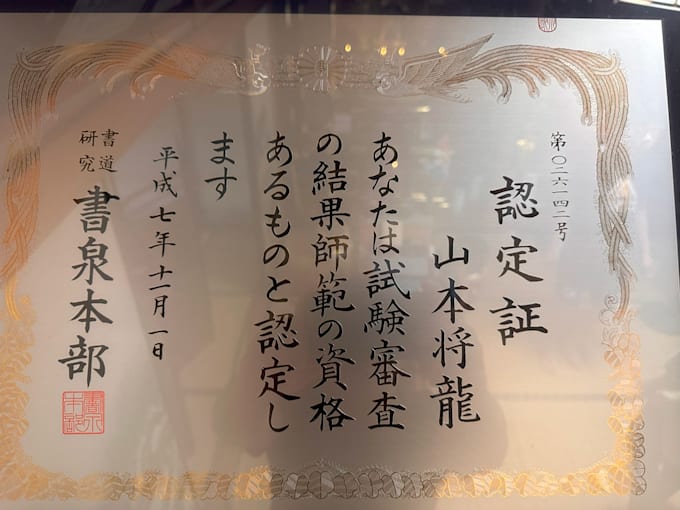 第〇二六一四二号
認定証
山本将龍
あなたは試験審査
の結果師範の資格
あるものと認定し
ます
平成七年十一月一日
書道
研究
書泉本部